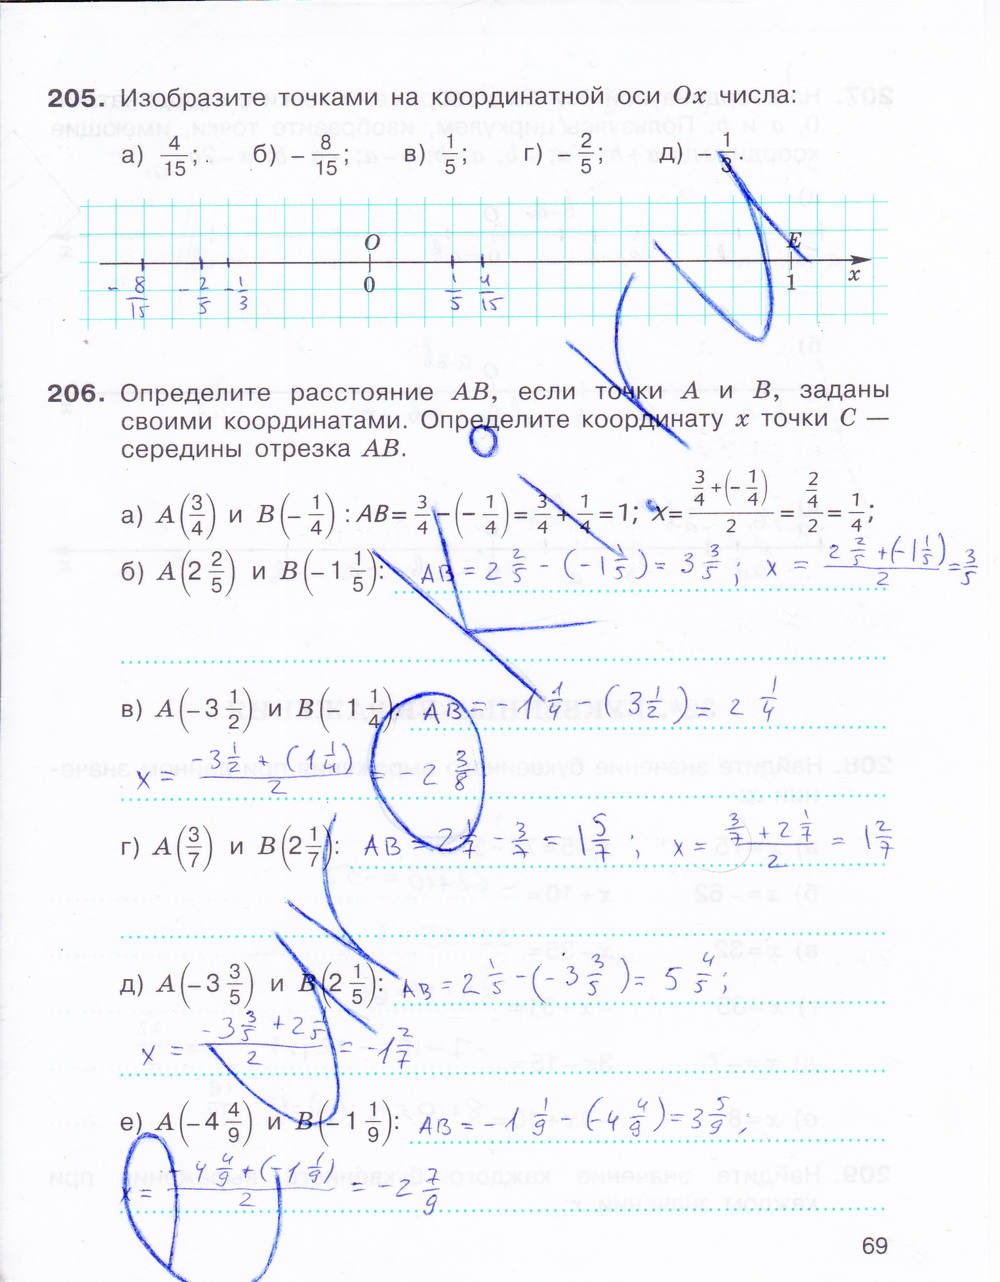 205. Изобразите точками на координатной оси Ox числа:
а) 4/15; б) −8/15; в) 1/5; г) −2/5; д) −1/3.
O E
−8/15 −2/5 −1/3 0 1/5 4/15 1 x
206. Определите расстояние AB, если точки A и B, заданы
своими координатами. Определите координату x точки C —
середины отрезка AB.
а) A(3/4) и B(−1/4) : AB = 3/4 − (−1/4) = 3/4 + 1/4 = 1; x = (3/4 + (−1/4))/2 = (2/4)/2 = 1/4;
б) A(2 2/5) и B(−1 1/5): AB = 2 2/5 − (−1 1/5) = 3 3/5; x = (2 2/5 + (−1 1/5))/2 = 3/5
в) A(−3 1/2) и B(−1 1/4) AB = −1 1/4 − (3 1/2) = 2 1/4
x = (3 1/2 + (1 1/4))/2 2 3/8
г) A(3/7) и B(2 1/7): AB = 2 1/7 − 3/7 = 1 5/7; x = (3/7 + 2 1/7)/2 = 1 2/7
д) A(−3 3/5) и B(2 1/5): AB = 2 1/5 − (−3 3/5) = 5 4/5;
x = (−3 3/5 + 2 1/5)/2 = −1 2/7
е) A(−4 4/9) и B(−1 1/9): AB = −1 1/9 − (−4 4/9) = 3 5/9;
x = (−4 4/9 + (−1 1/9))/2 = −2 7/9
69